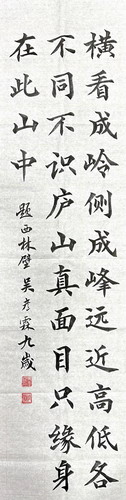 横看成岭侧成峰远近高低各
不同不识庐山真面目只缘身
在此山中
题西林壁吴彦霖九岁